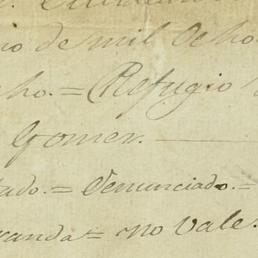 no de mil Ocho
cho. = Refugio
Gomez. —
tado. = Denunciado. =
randa = no Vale.